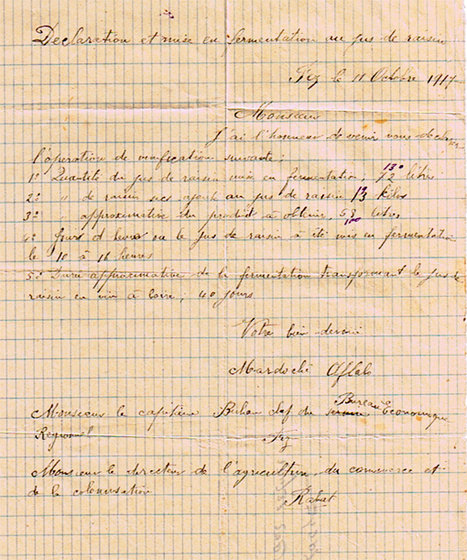 Declaration et mise en fermentation au jus de raisin
Fez le 11 Octobre 1917
Monsieur
J'ai l'honneur de venir vous declarer
l'operation de vinification suivante;
1º Quantite du jus de raisin mise en fermentation, litres
2º " de raisin sec ajouté au jus de raisin 13 kilos
3º " approximative du produit à obtenir, litres
4º Jours et heures ou le jus de raisin à été mis en fermentation
le 10 à 16 heures
5º Durée approximative de la fermentation transformant le jus de
raisin en vin à boire, 40 jours
Votre bien devoué
Mardoché Aflalo
Bureau
Monsieur le capitaine chef du Economique
Régional Fez
Monsieur le directeur de l'agriculture, du commerce et
de la colonisation
Rabat